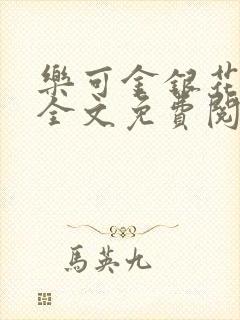 樂可金銀花
全文免費閱
馬英九